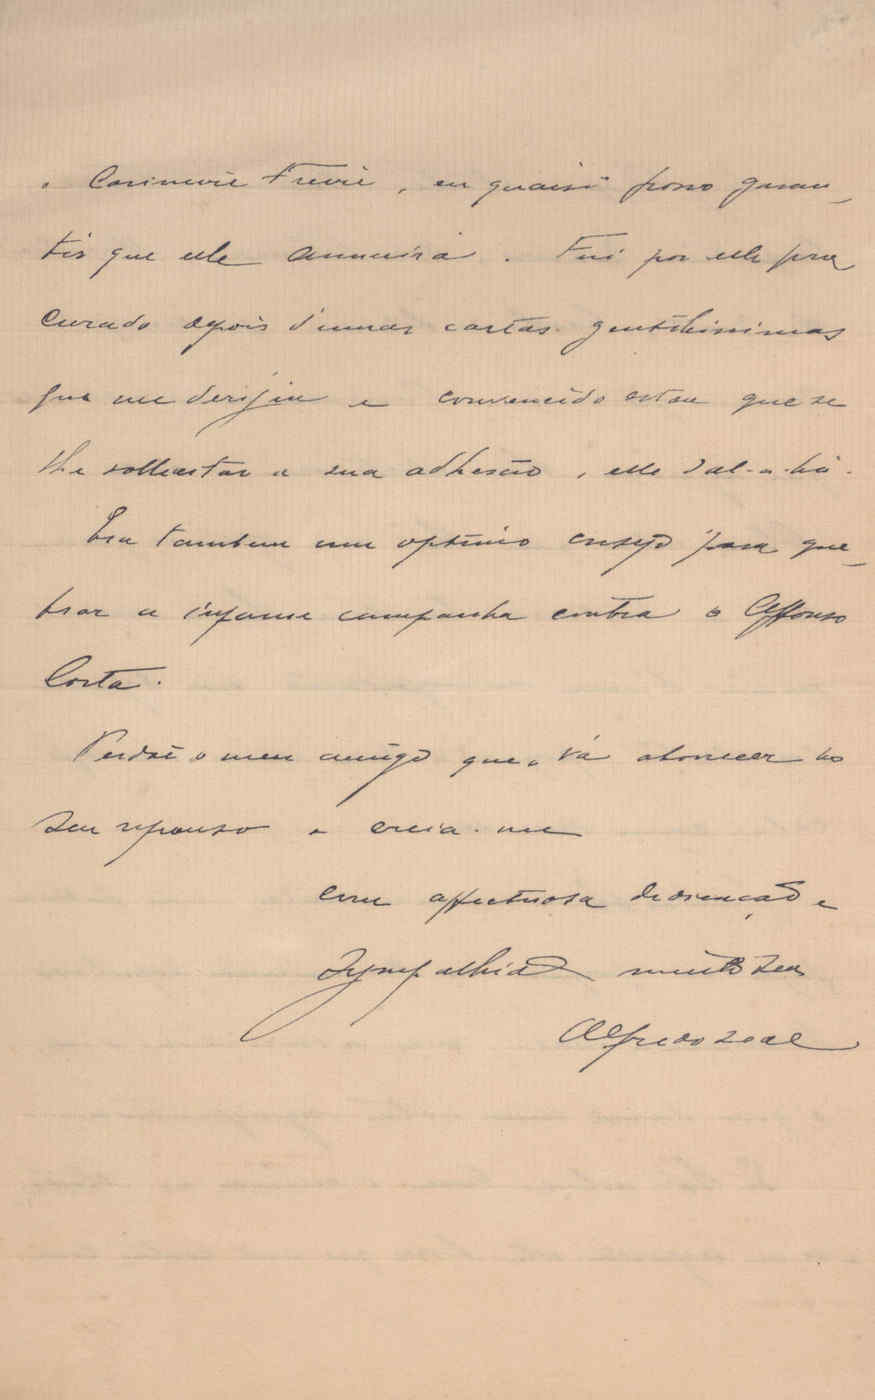 o Casimiro Freire, eu quaisi posso garan-
tir que elle annuirá. Fui por elle pro
curado depois d'umas cartas gentilissimas
que me derigiu e convencido estou que se
lhe sollicitar a sua adhesão, elle dal-a-há.
Era tambem um optimo ensejo para que-
brar a infame campanha contra o Affonso
Costa.
Perdoe o meu amigo que o vá aborrecer no
seu repouso e creia-me
com affectuosa dedicação e
sympathia muito seu
Alfredo Leal